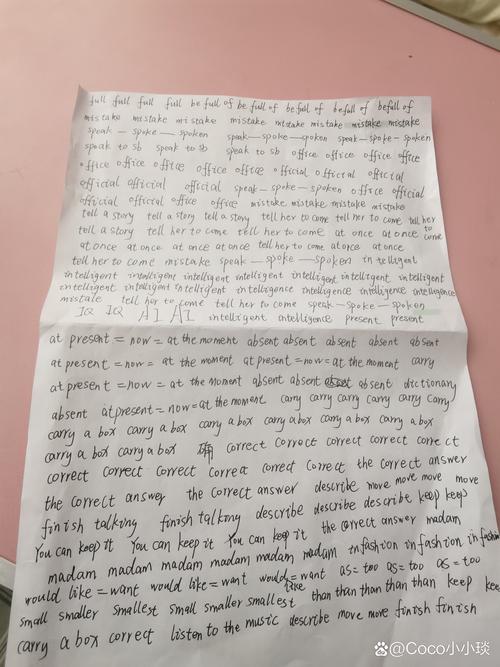 full full full full be full of be full of be full of be full of be full of
mistake mistake mistake mistake mistake mistake mistake mistake
speak — spoke — spoken speak—spoke—spoken speak—spoke-spoken
speak to sb speak to sb speak to sb office office office office
office office office office office official official official
official official official speak-spoke-spoken office official
official official office office mistake mistake mistake mistake
tell a story tell a story tell a story tell her to come tell her to come tell her
tell a story tell her to come tell her to come at once at once to come
at once at once at once at once tell her to come at once at once
tell her to come mistake speak—spoke—spoken intelligent
intelligent intelligent intelligent intelligent intelligent intelligent intelligent
intelligent intelligent intelligence intelligence intelligence intelligence
mistake tell her to come tell her to come speak—spoke—spoken
IQ IQ AI AI intelligent intelligence present present
at present = now = at the moment absent absent absent absent absent
at present = now = at the moment at present = now = at the moment carry
at present = now = at the moment absent absent absent dictionary
absent at present = now = at the moment carry carry carry carry carry carry
carry a box carry a box carry a box carry a box carry a box carry a box
carry a box carry a box 确 correct correct correct correct correct
correct correct correct correct correct correct the correct answer
the correct answer the correct answer describe move move move move
finish talking finish talking describe describe describe keep keep
You can keep it You can keep it You can keep it the correct answer madam
madam madam madam madam madam madam in fashion in fashion in fashion
would like = want would like = want would like = want as = too as = too as = too
small smaller smallest small smaller smallest than than than than than keep keep
carry a box correct listen to the music describe move move finish finish
Coco小小琰